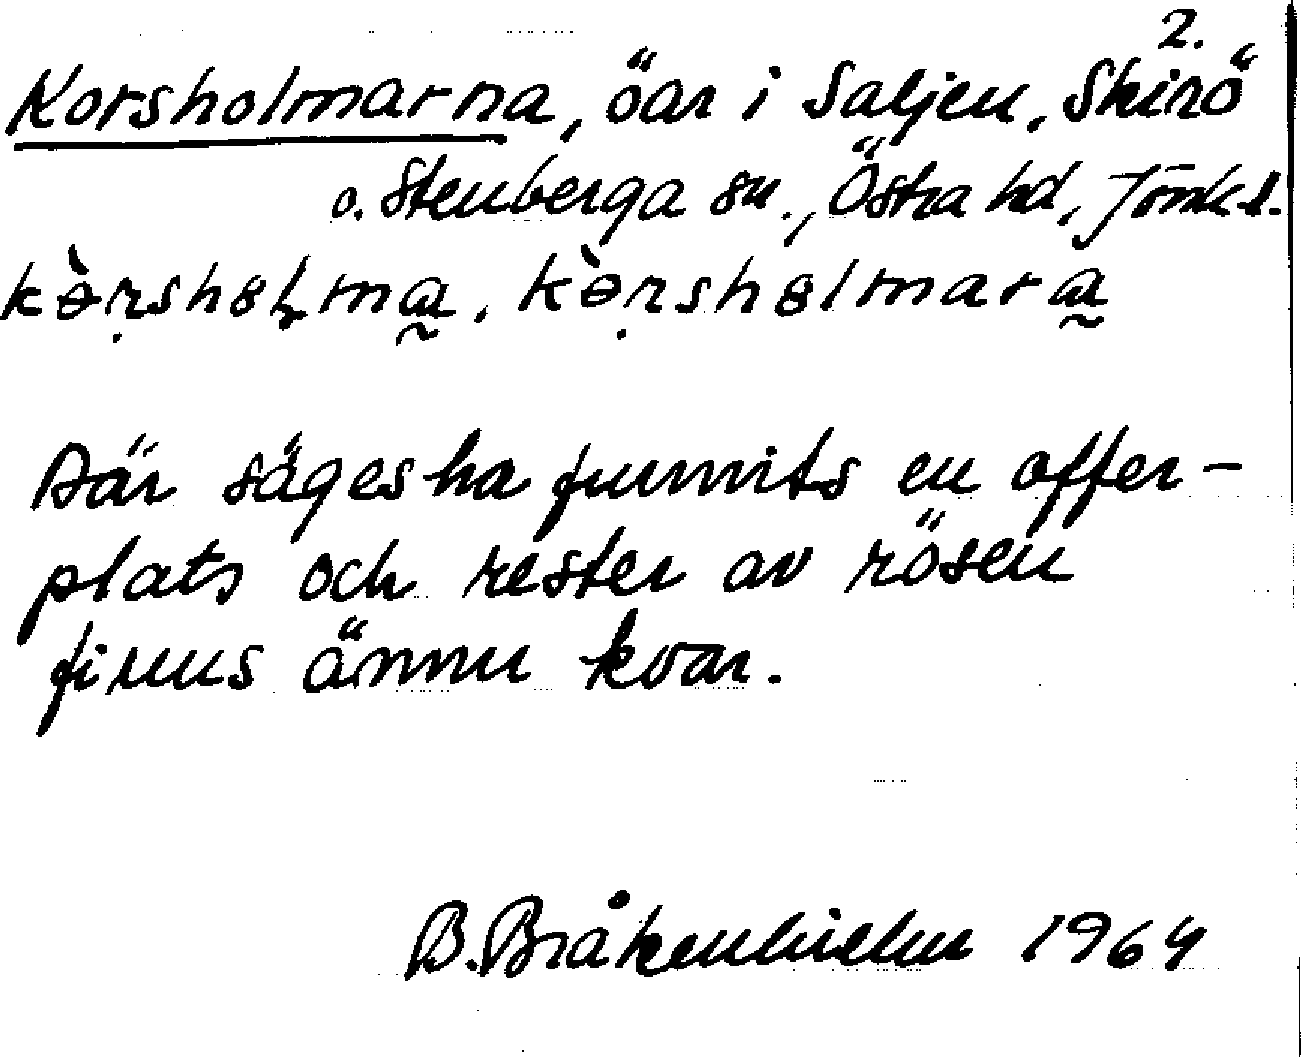 2.
Korsholmarna, öar i Saljen, Skirö
o. Stenberga sn., Östra hd, Jönk. l.
kɵ̀ṛsholma̰, kɵ̀ṛsholmara̰
Där säges ha funnits en offer-
plats och rester av rösen
finns ännu kvar.
B. Bråkenhielm 1964